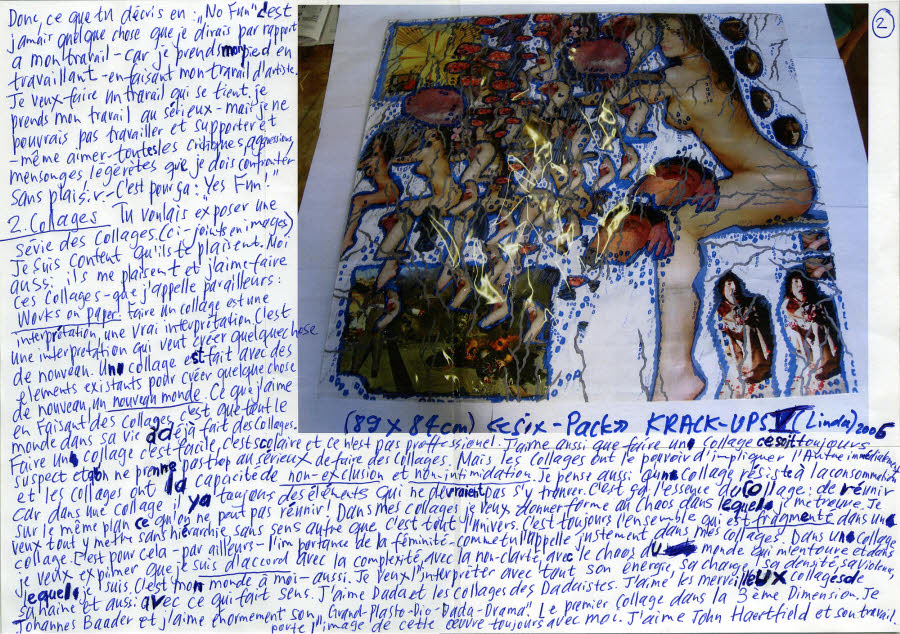 2
Donc, ce que tu décris en: "No Fun" c'est
jamais quelque chose que je dirais par rapport
a mon travail - car je prends mon pied en
travaillant - en faisant mon travail d'artiste.
Je veux faire un travail qui se tient, je
prends mon travail au sérieux - mais je ne
pouvrais pas travailler et supporter et
- même aimer - toutes les critiques, aggressions,
mensonges légèretés que je dois confronter
sans plaisir. - C'est pour ça: "Yes Fun!"
2. Collages Tu voulais exposer une
série des Collages. (ci-joints en images)
Je suis content qu'ils te plaisent. Moi
aussi: ils me plaisent et j'aime faire
ces Collages - que j'appelle par ailleurs:
Works on paper. Faire un collage est une
interprétation, une vrai interprétation. C'est
une interprétation qui veut créer quelque chose
de nouveau. Un collage est fait avec des
élements existants pour créer quelque chose
de nouveau, un nouveau monde. Ce que j'aime
en faisant des collages, c'est que tout le
monde dans sa vie a déjà fait des collages.
(89 x 84 cm) «Six-Pack» KRACK-UPS V (Linda) 2006
Faire un collage c'est facile, c'est scolaire et ce n'est pas proffessionel. J'aime aussi que faire un collage ce soit toujours
suspect et qu'on ne prenne pas trop au sérieux de faire des collages. Mais les collages ont le pouvoir d'impliquer l'Autre immédiatement
et les collages ont la capacité de non-exclusion et non-intimidation. Je pense aussi qu'un collage résiste à la consommation
car dans une collage il y a toujours des élements qui ne devraient pas s'y trouver. C'est ça l'essence du collage: de réunir
sur le même plan ce qu'on ne peut pas réunir! Dans mes collages je veux donner forme au chaos dans lequel je me trouve. Je
veux tout y mettre sans hiérarchie, sans sens autre que c'est tout l'univers. C'est toujours l'ensemble qui est fragmenté dans un
collage. C'est pour cela - par ailleurs - l'importance de la féminité - comme tu l'appelle justement dans mes collages. Dans un collage
je veux exprimer que je suis d'accord avec la complexité, avec la non-clarté, avec le chaos du monde qui m'entoure et dans
lequel je suis. C'est mon monde à moi - aussi. Je veux l'interpréter avec tout son énergie, sa charge, sa densité, sa violence,
sa haine et aussi avec ce qui fait sens. J'aime Dada et les collages des Dadaistes. J'aime les merveilleux collages de
Johannes Baader et j'aime énormement son "Grand-Plasto-Dio-Dada-Drama". Le premier collage dans la 3ème Dimension. Je
porte l'image de cette œuvre toujours avec moi. J'aime John Haertfield et son travail.